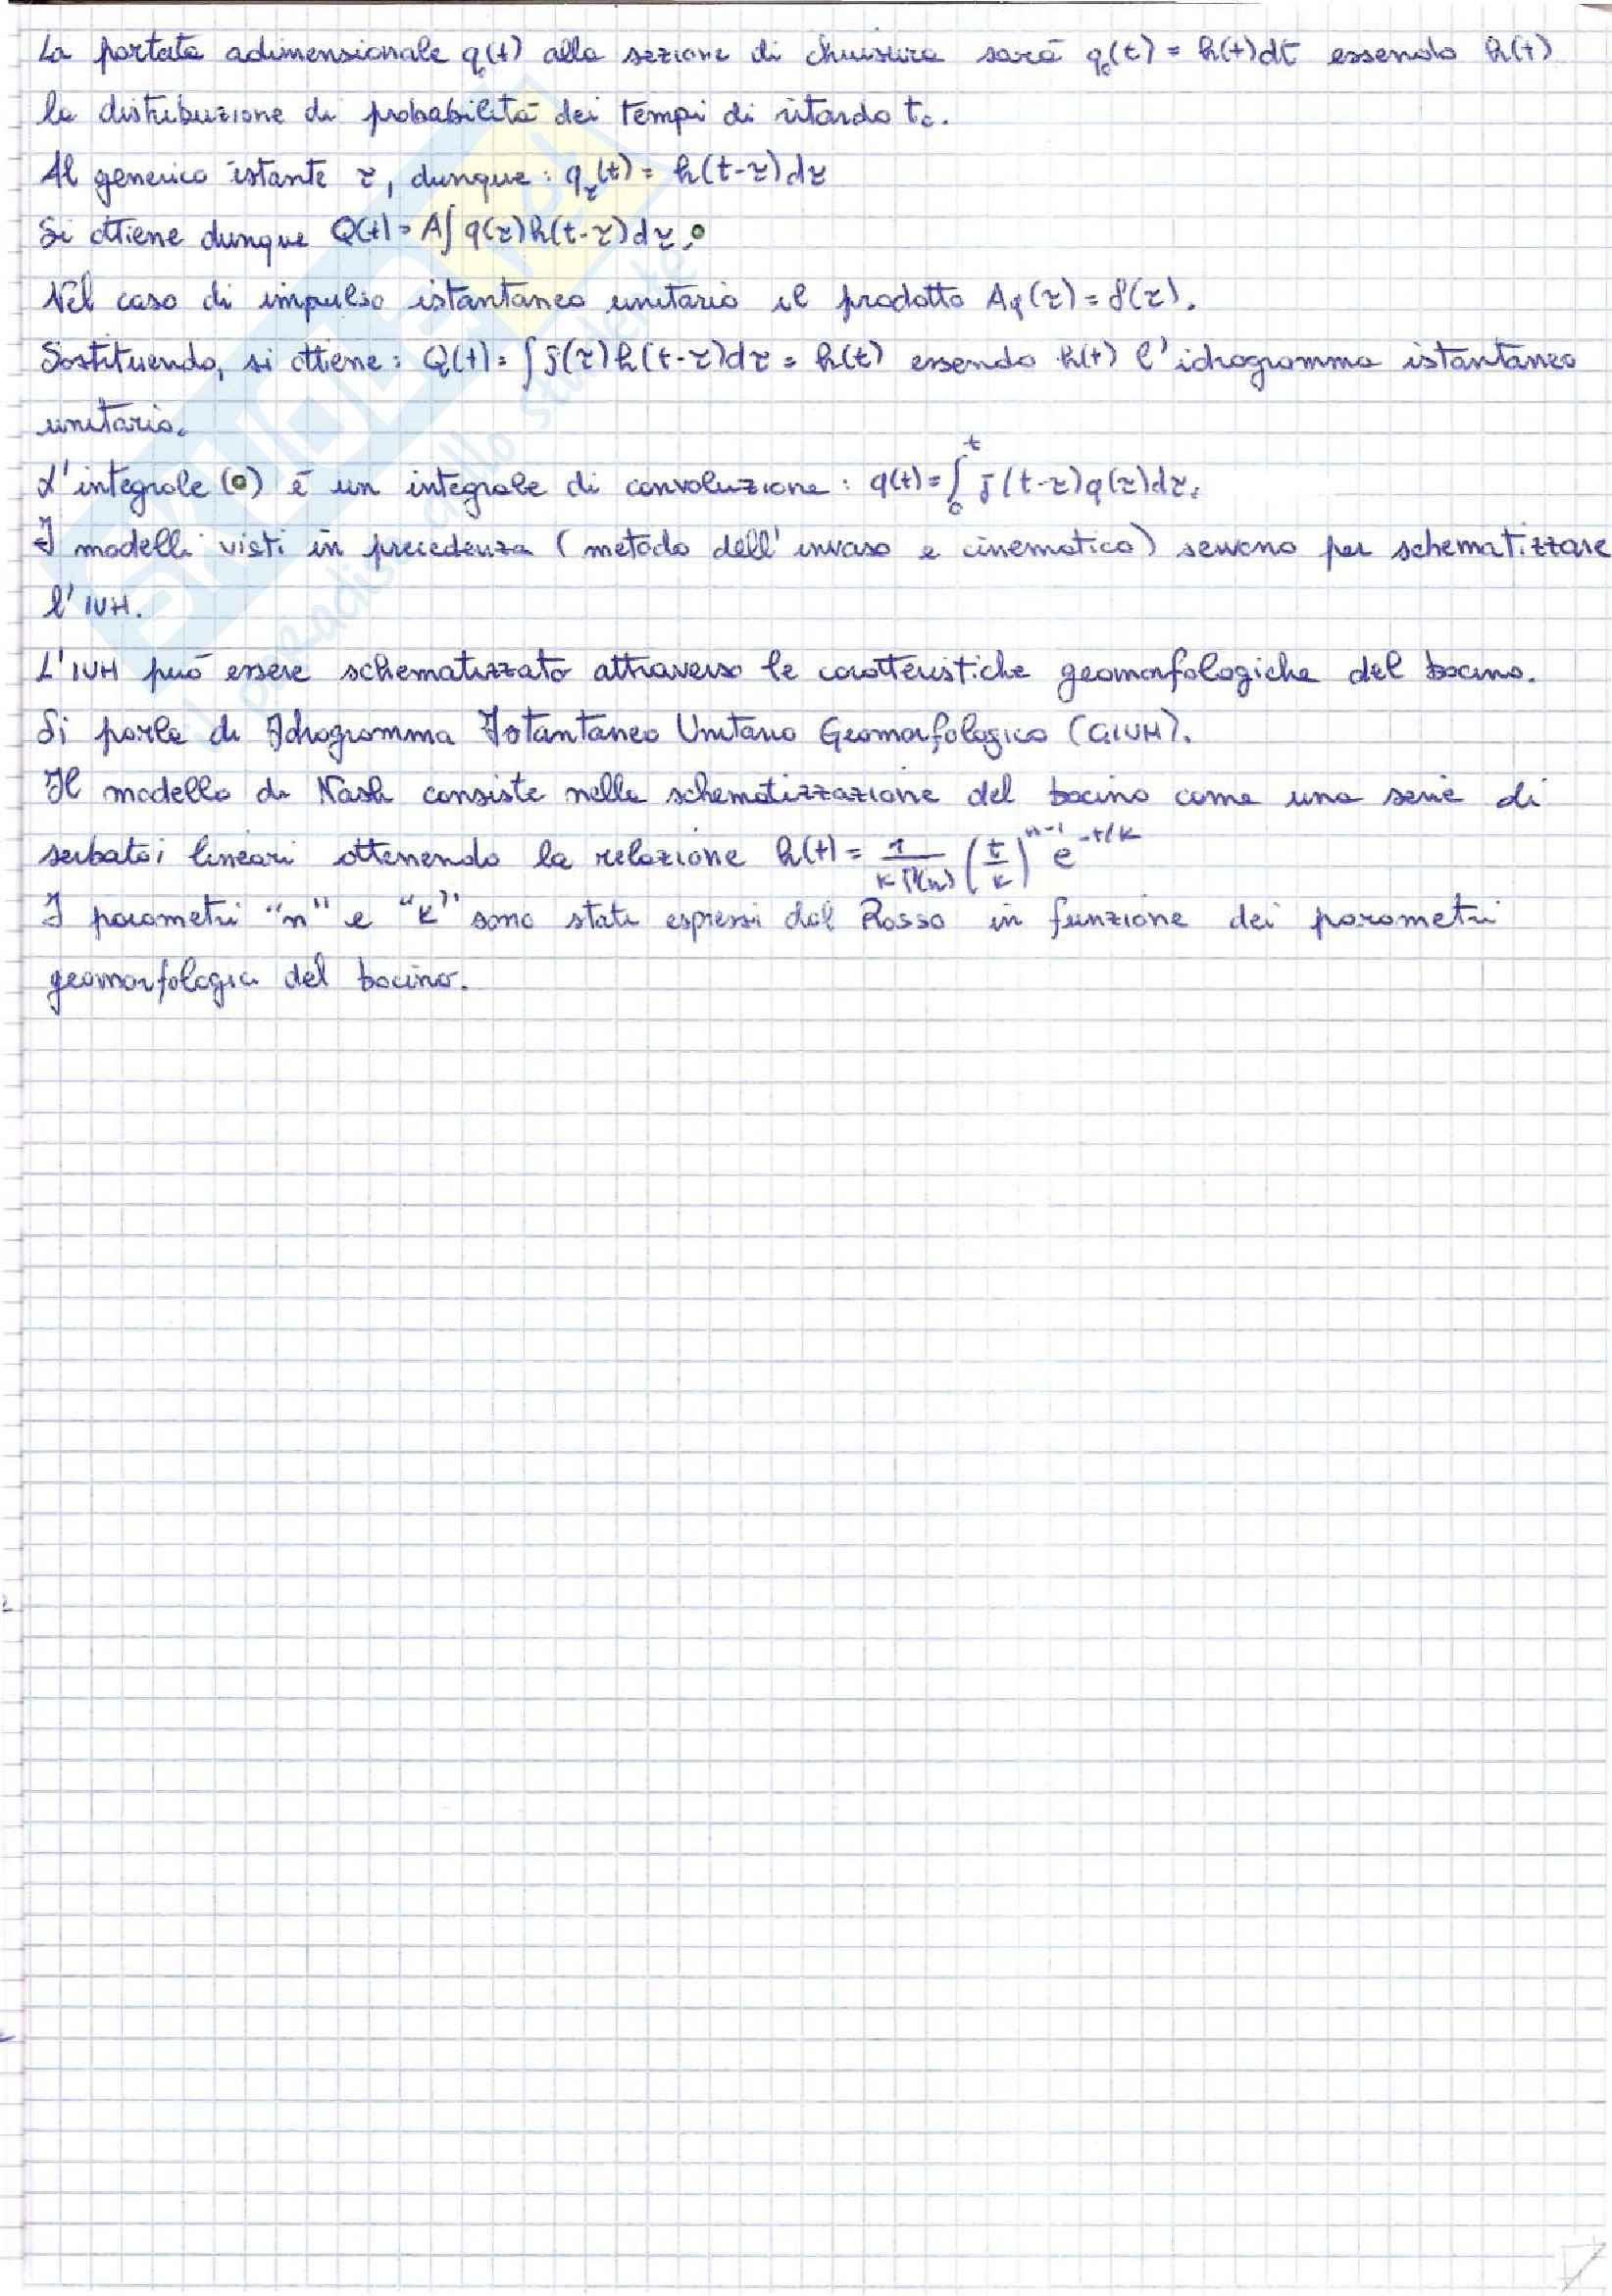 La portata adimensionale qc(t) alla sezione di chiusura sarà qc(t) = h(t)dt essendo h(t)
la distribuzione di probabilità dei tempi di ritardo tc.
Al generico istante τ, dunque: qτ(t) = h(t-τ)dτ
Si ottiene dunque Q(t) = A∫ q(τ)h(t-τ)dτ.
Nel caso di impulso istantaneo unitario il prodotto Aq(τ) = δ(τ).
Sostituendo, si ottiene: Q(t) = ∫ δ(τ)h(t-τ)dτ = h(t) essendo h(t) l'idrogramma istantaneo
unitario.
L'integrale (o) è un integrale di convoluzione: q(t) = ∫₀ᵗ j(t-τ)q(τ)dτ.
I modelli visti in precedenza (metodo dell'invaso e cinematico) servono per schematizzare
l'IUH.
L'IUH può essere schematizzato attraverso le caratteristiche geomorfologiche del bacino.
Si parla di Idrogramma Istantaneo Unitario Geomorfologico (GIUH).
Il modello di Nash consiste nella schematizzazione del bacino come una serie di
serbatoi lineari ottenendo la relazione h(t) = 1/(kΓ(n)) (t/k)^(n-1) e^(-t/k)
I parametri "n" e "k" sono stati espressi dal Rosso in funzione dei parametri
geomorfologici del bacino.
SKUOLA
il paradiso dello studente